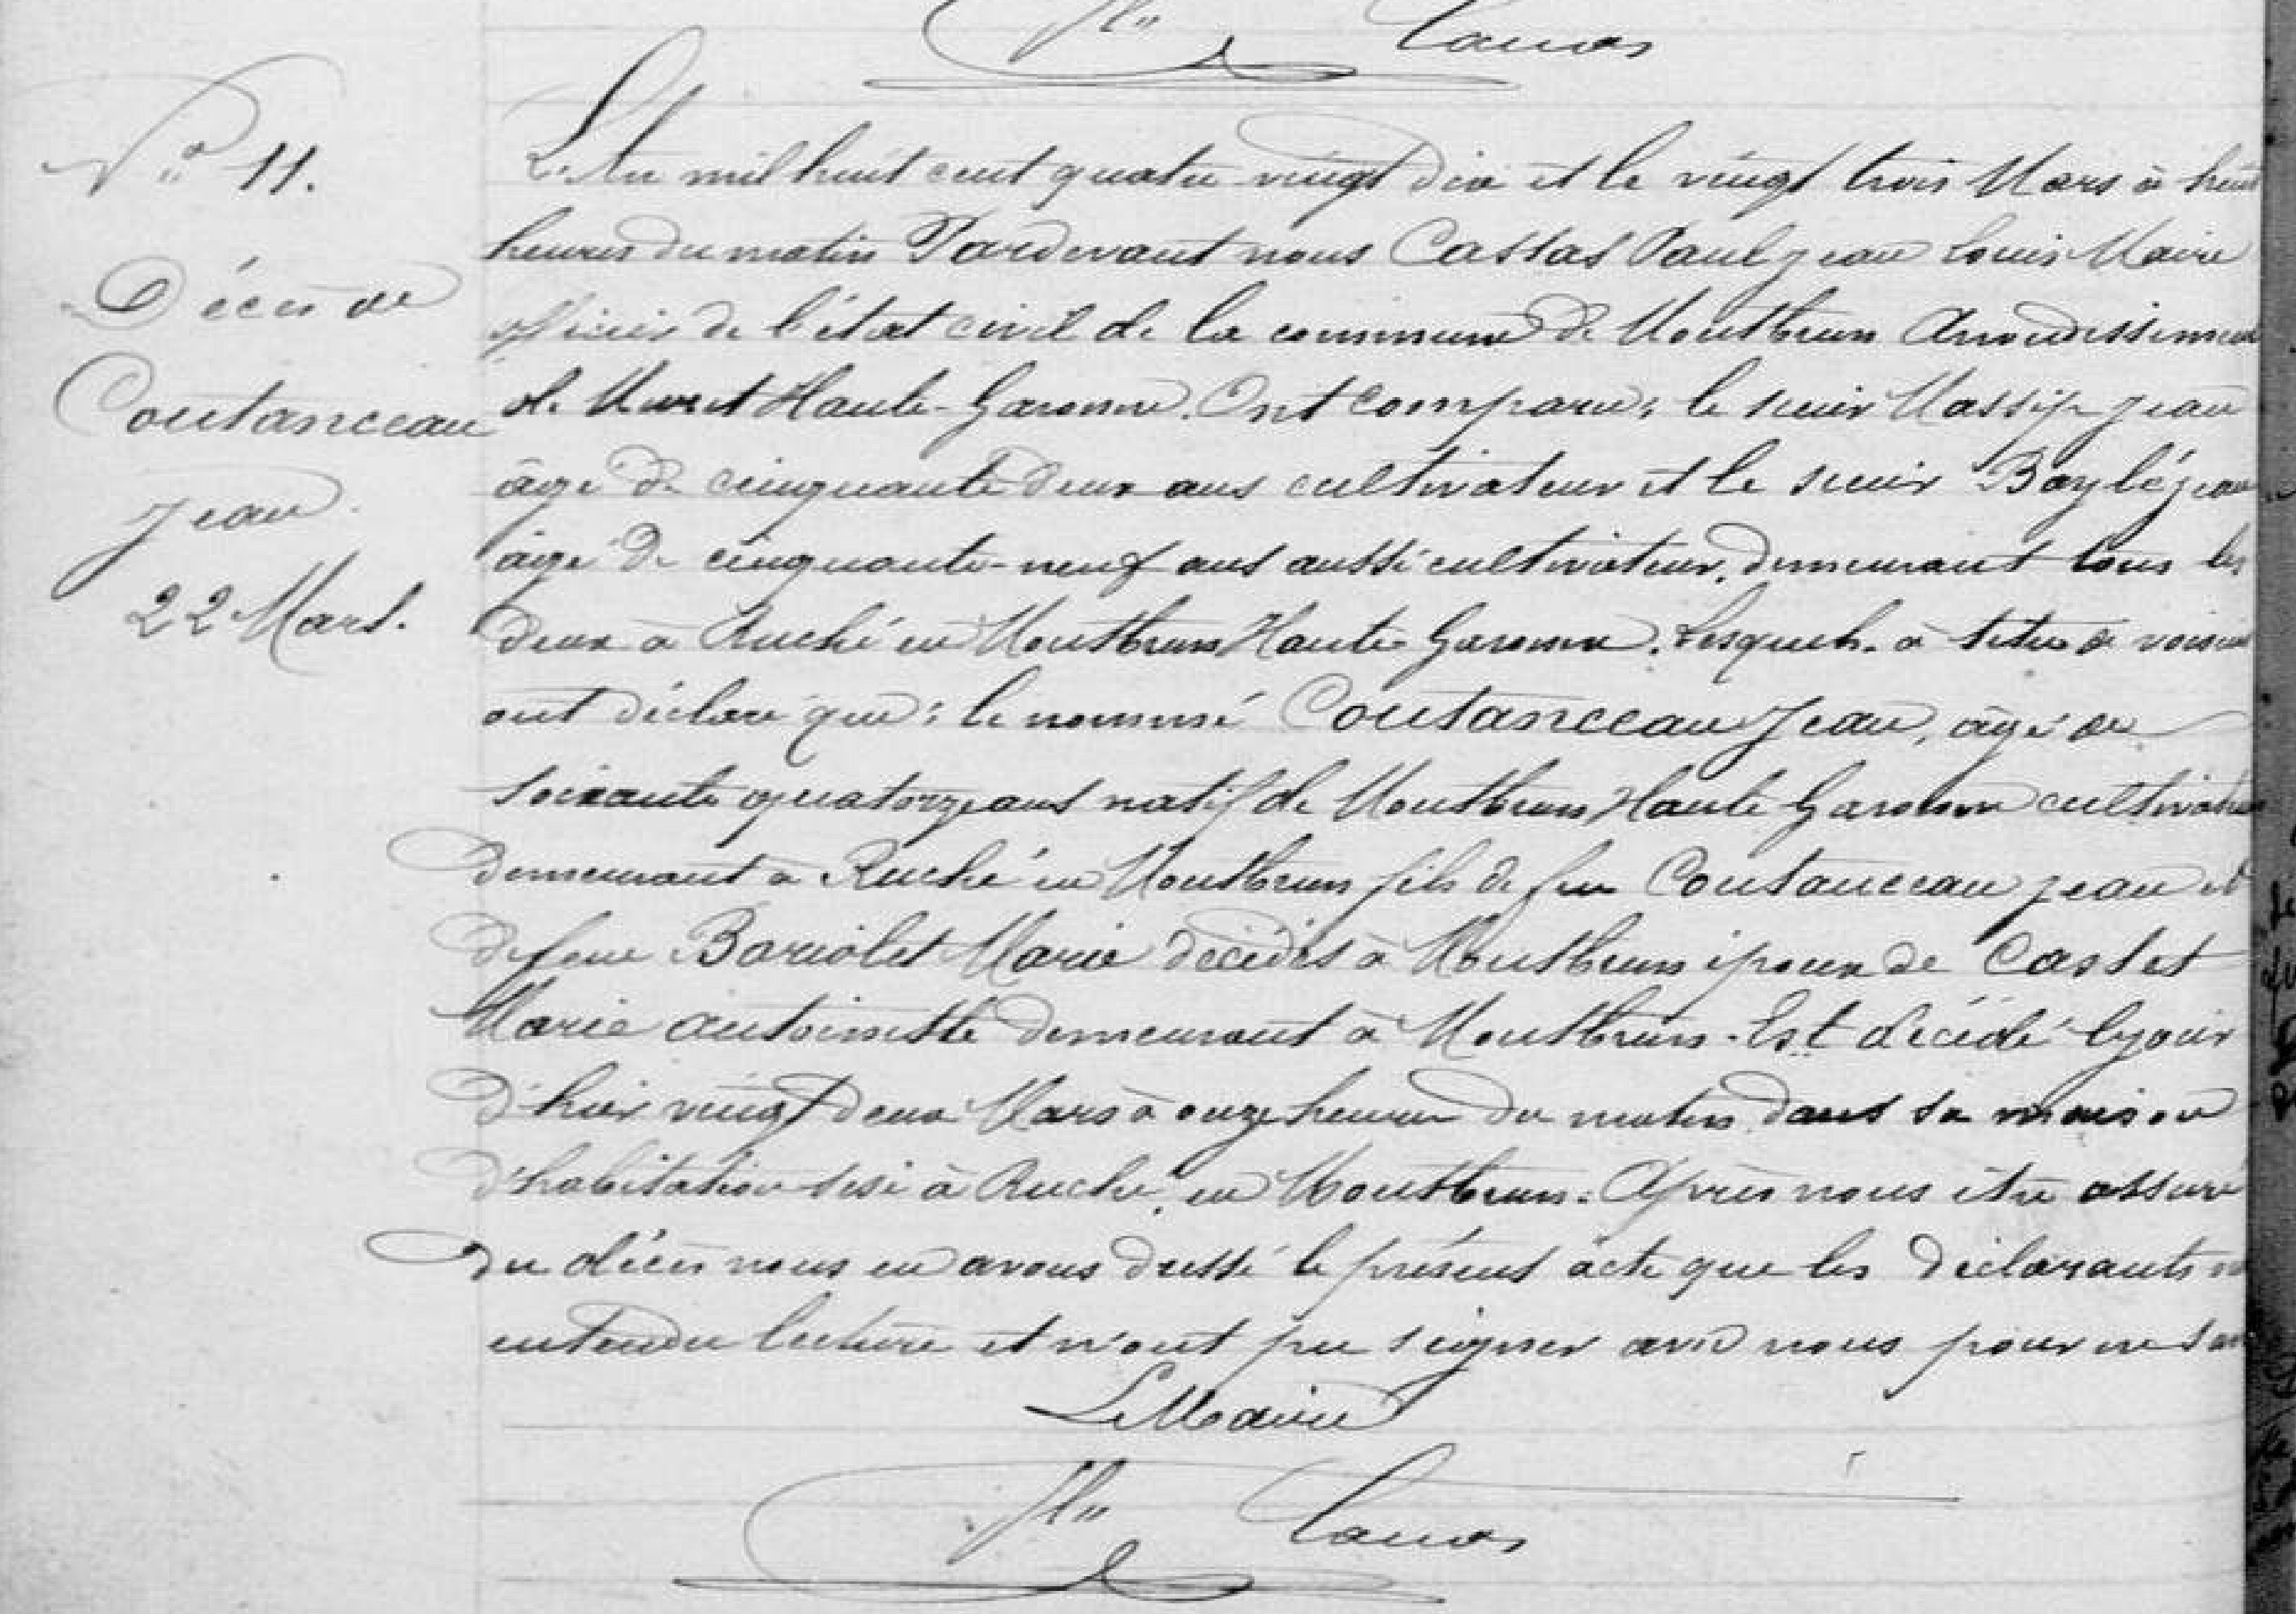 Cassas
N° 11.
Décès de
Coutanceau
Jean
22 Mars.
L'An mil huit cent quatre vingt dix et le vingt trois Mars à huit
heures du matin Pardevant nous Cassas Paul jean Louis Maire
officier de l'état civil de la commune de Montbrun Arrondissement
de Muret Haute-Garonne. Ont comparu; le sieur Massip jean
âgé de cinquante deux ans cultivateur et le sieur Baylé jean
âgé de cinquante-neuf ans aussi cultivateur, demeurant tous les
deux à Ruché en Montbrun Haute Garonne. Lesquels. à titre de voisins
ont déclaré que; le nommé Coutanceau Jean, âgé de
soixante quatorze ans natif de Montbrun Haute Garonne cultivateur
demeurant à Ruché en Montbrun fils de feu Coutanceau jean et
de feue Bariolet Marie décédés à Montbrun époux de Castet
Marie antoinette demeurant à Montbrun. Est décédé le jour
d'hier vingt deux Mars à onze heures du matin dans sa maison
d'habitation sise à Ruché en Montbrun. Après nous être assuré
du décès nous en avons dressé le présent acte que les déclarants
entendu lecture et n'ont pu signer avec nous pour ne
Le Maire
Cassas